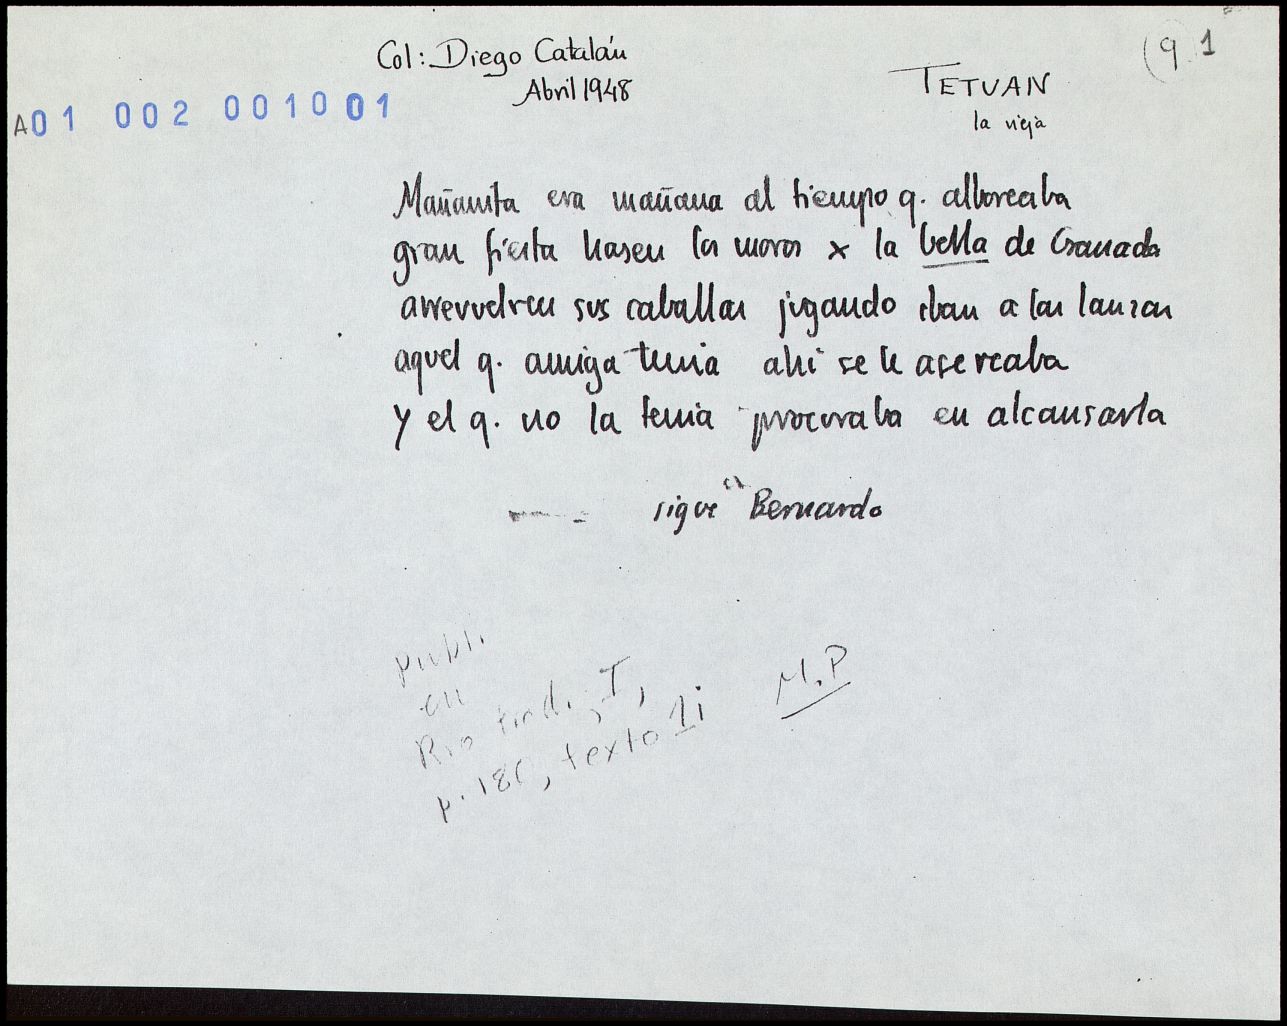 Col: Diego Catalán
Abril 1948
(9.1
TETUAN
la vieja
A01 002 0010 01
Mañanita era mañana al tiempo q. alboreaba
gran fiesta hasen los moros x la bella de Granada
arrevuelven sus caballos jugando iban a las lanzas
aquel q. amiga tenia ahi se le asercaba
y el q. no la tenia procuraba en alcansarla
sigue el Bernardo
publ.
en
Rom. trad., I,
p. 180, texto 1i
M.P